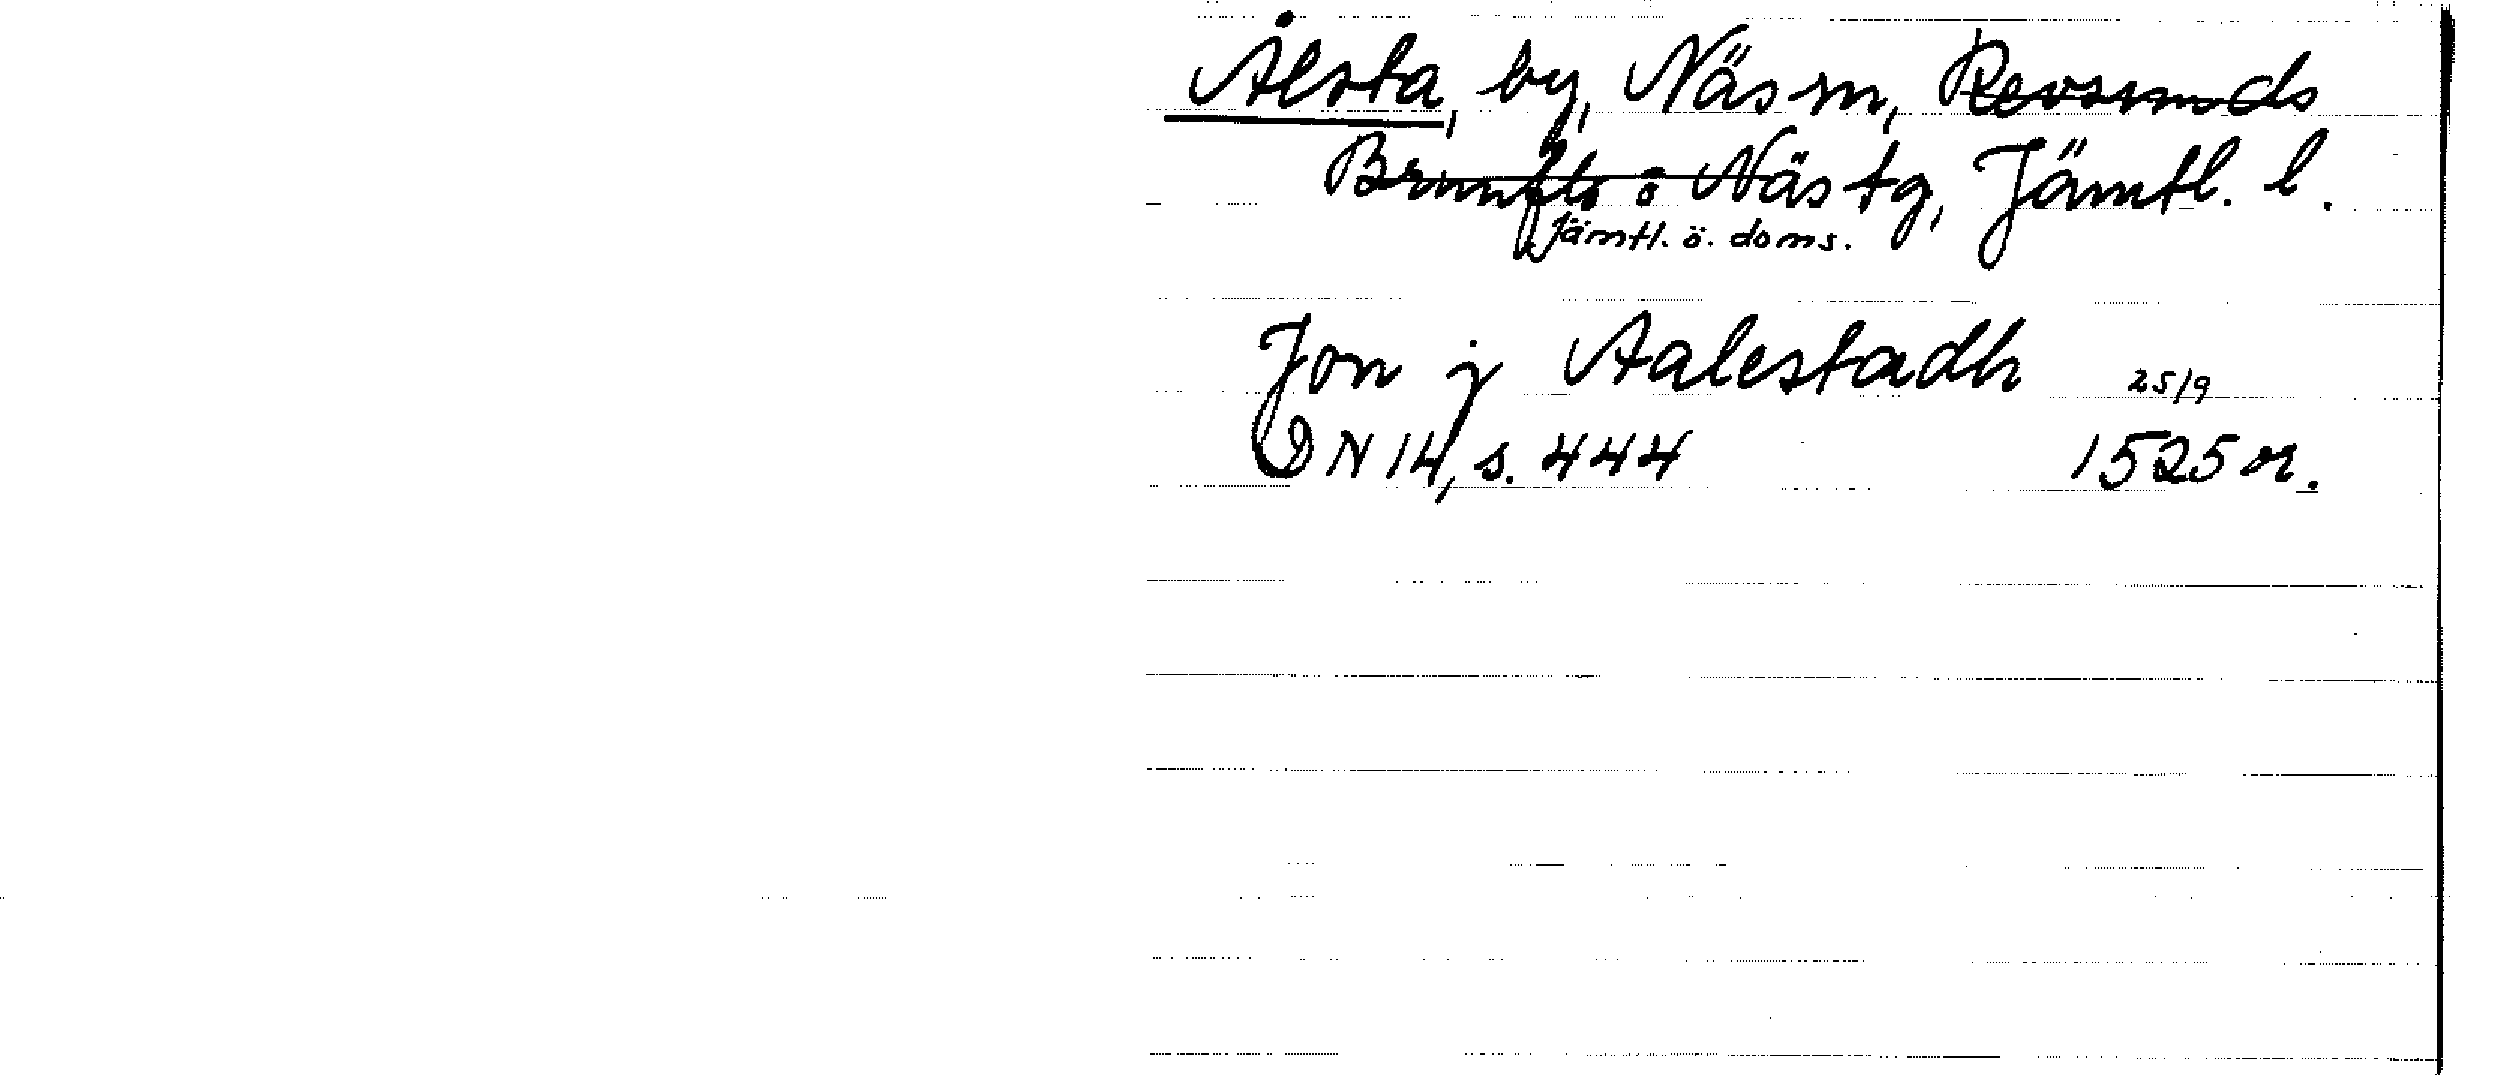 Ålsta, by, Näs sn, Revsunds
Brunflo o Näs tg, Jämtl. l.
Jämtl. ö. doms.
Jon j Aalestadh 25/9
DN 14, s. 444 1525 or.